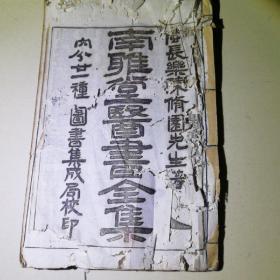 長樂陳修園先生著
南雅堂醫書全集
內分廿一種 圖書集成局校印